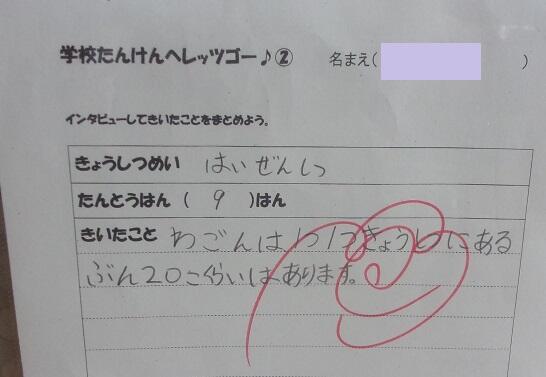 学校たんけんへレッツゴー♪②　名まえ(　　　)
インタビューしてきいたことをまとめよう。
きょうしつめい　はいぜんしつ
たんとうはん（　9　)はん
きいたこと　わごんは1つ1つきょうしつにある
ぶん20こくらいはあります。